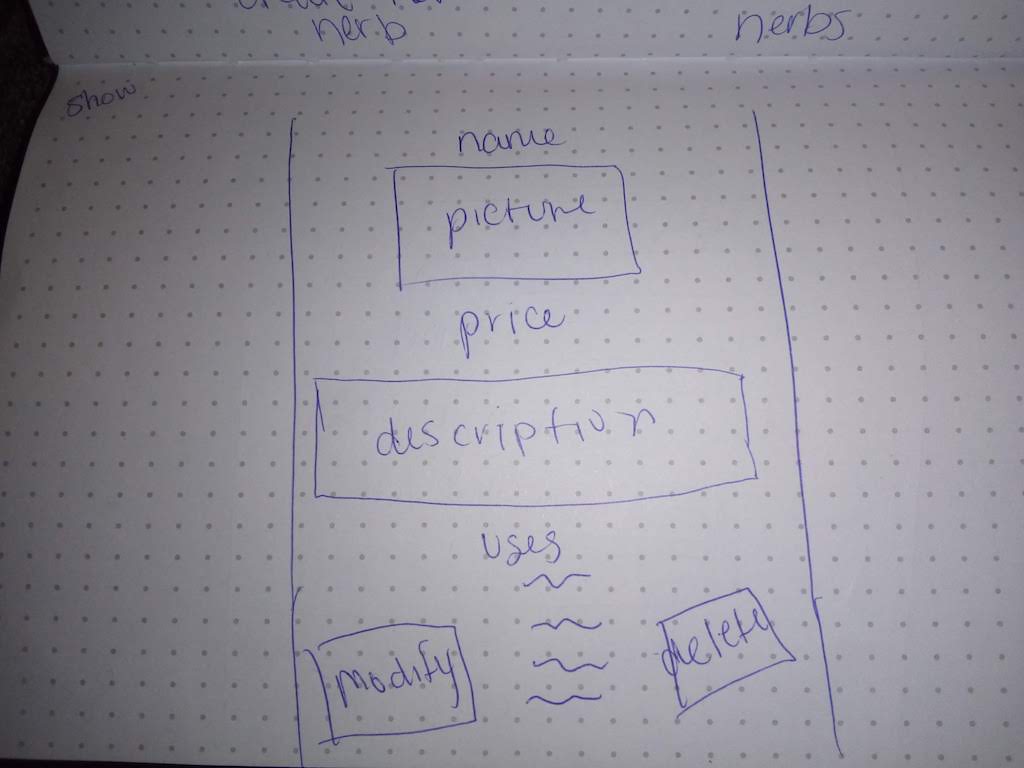 herb
herbs
show
name
picture
price
description
uses
modify
delety